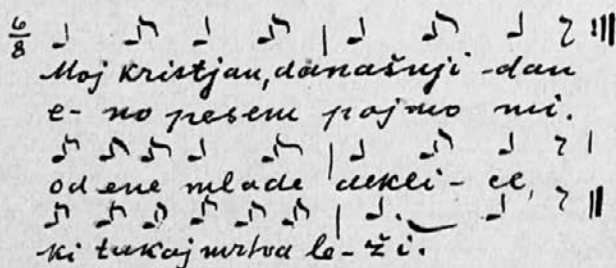 6/8
Moj kristjan, današnji - dan
e - no pesem pojmo mi.
od ene mlade dekli - ce,
ki tukaj mrtva le - ži.